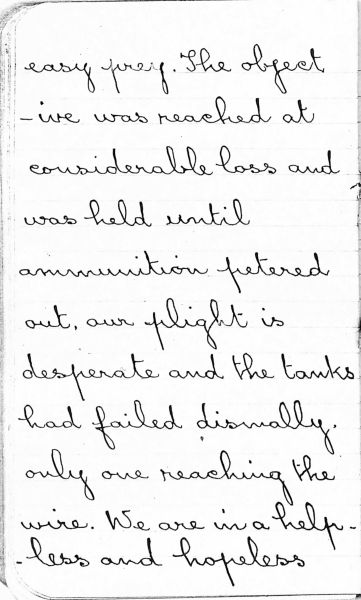 easy prey. The object
-ive was reached at
considerable loss and
was held until
ammunition petered
out, our plight is
desperate and the tanks
had failed dismally.
only one reaching the
wire. We are in a help-
-less and hopeless